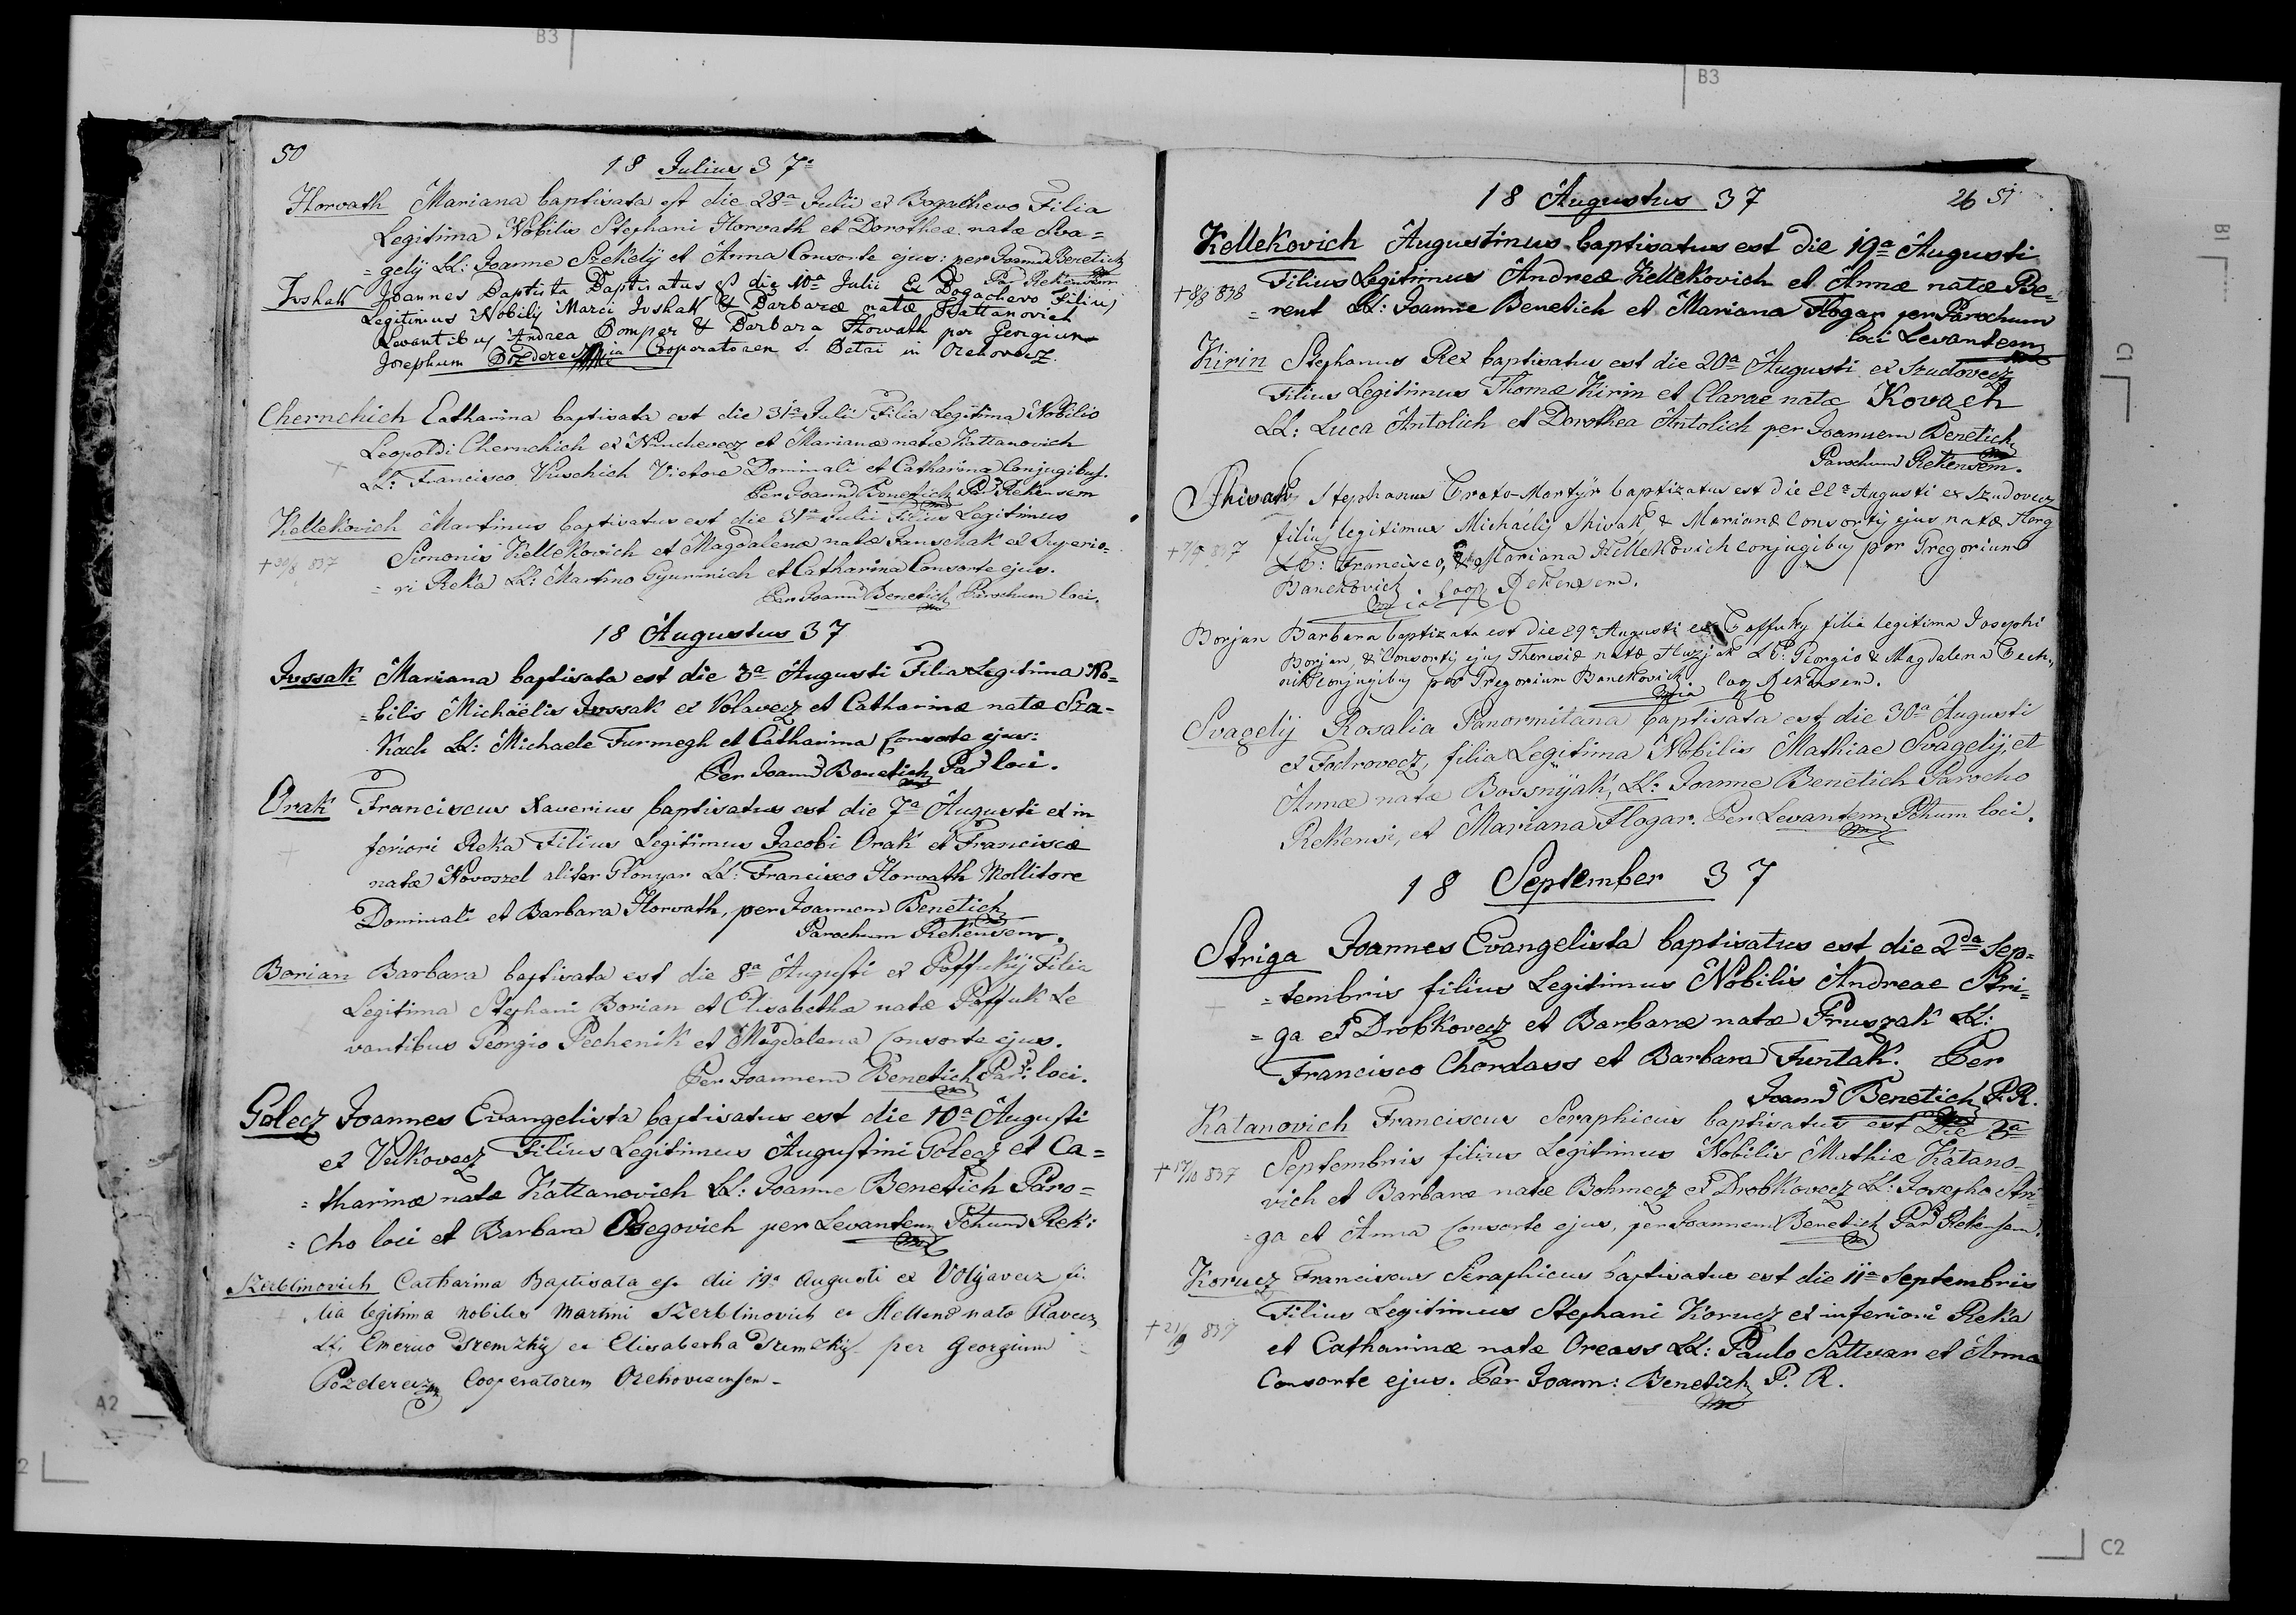 B3
B3
50
18 Julius 37
Horvath Mariana baptisata est die 28a Julii ex Bogachevo Filia
Legitima Nobilis Stephani Horvath et Dorotheæ natæ Sva=
=gelÿ LL: Joanne Szekelÿ et Anna Consorte ejus: per Joannē Benetich
Par Rekensem
Ivshak Joannes Baptista Baptisatus est die 10a Julii Ex Bogachevo Filius
Legitimus Nobilis Marci Ivshak & Barbaræ natæ Kattanovich
Levantibus Andrea Pomper & Barbara Horvath per Georgium
Josephum Cooperatorem S. Petri in Orehovecz.
Chernchich Catharina baptisata est die 31a Julii Filia Legitima Nobilis
Leopoldi Chernchich ex Ninchevecz et Marianæ natæ Kattanovich
LL: Francisco Vuschich Victore Dominali et Catharina Conjugibus.
Per Joannē Benetich Par Rekensem
Kellekovich Martinus baptisatus est die 31a Julii Filius Legitimus
+ 30/8 837 Simonis Kellekovich et Magdalenæ natæ Fanschak ex Superio=
= ri Reka LL: Martino Gyurinich et Catharina Consorte ejus.
Per Joannē Benetich Parochum loci.
18 Augustus 37
Jvssak Mariana baptisata est die 3a Augusti Filia Legitima No=
=bilis Michäelis Jvssak ex Volavecz et Catharinæ natæ Sza=
kach LL: Michaele Furmegh et Catharina Consorte ejus:
Per Joannē Benetich Par loci.
Orak Franciscus Xaverius baptisatus est die 7a Augusti ex in
feriori Reka Filius Legitimus Jacobi Orak et Franciscæ
natæ Novoszel aliter Glonyar LL: Francisco Horvath Mollitore
Dominali et Barbara Horvath, per Joannem Benetich
Parochum Rekensem.
Borian Barbara baptisata est die 8a Augusti ex Poffukÿ Filia
Legitima Stephani Borian et Elisabethæ natæ Paffuk Le
vantibus Georgio Pechenik et Magdalena Consorte ejus.
Per Joannem Benetich Par: loci.
Golecz Joannes Evangelista baptisatus est die 10a Augusti
ex Vukovecz Filius Legitimus Augustini Golecz et Ca=
=tharinæ natæ Kattanovich LL: Joanne Benetich Paro=
= cho loci et Barbara Osegovich per Levantem Pchum Rek:
Szerblinovich Catharina Baptisata est die 19a Augusti ex Volÿavecz fi
lia legitima nobilis Martini Szerblinovich et Hellenæ nato Ravecz
LL. Emerico Dremzkÿ et Elisabetha Dremzkÿ per Georgium
Pozderecz Cooperatorem Orehovecensem-
18 Augustus 37
26 51
Kellekovich Augustinus baptisatus est die 19a Augusti
+ 8/3 838 Filius Legitimus Andreæ Kellekovich et Annæ natæ Be=
= rent LL: Joanne Benetich et Mariana Flogar per Parochum
loci Levantem
Kirin Stephanus Rex baptisatus est die 20a Augusti ex Szudovecz
Filius Legitimus Thomæ Kirin et Claræ natæ Kovach
LL: Luca Antolich et Dorothea Antolich per Joannem Benetich
Parochum Rekensem.
Shivak Stephanus Proto-Martÿr baptizatus est die 22a Augusti ex Szudovecz
filius legitimus Michaëlis Shivak & Marianæ Consortis ejus natæ Herg
LL: Francisco, & Mariana Kellekovich conjugibus per Gregorium
Banekovich Coop Rekensem.
Borjan Barbara baptizata est die 29a Augusti ex Poffuky filia legitima Josephi
Borjan, & Consortis ejus Theresiæ natæ Huzjak LL: Georgio & Magdalena Pech
nik Conjugibus per Gregorium Banekovich Coop Rekensem.
Svagelÿ Rosalia Panormitana baptisata est die 30a Augusti
ex Fodrovecz, filia Legitima Nobilis Mathiæ Svagelÿ, et
Annæ natæ Bossnÿak, LL: Joanne Benetich Parocho
Rekensi, et Mariana Flogar. Per Levantem Pchum loci.
18 September 37
Striga Joannes Evangelista baptisatus est die 2da Sep=
=tembris filius Legitimus Nobilis Andreae Stri=
= ga ex Drobkovecz et Barbaræ natæ Pruszak LL:
Francisco Chordass et Barbara Funtak. Per
Joannē Benetich P.R.
Katanovich Franciscus Seraphicus baptisatus est Die 3a
+ 17/10 837 Septembris filius Legitimus Nobilis Mathiæ Katano=
vich et Barbaræ natæ Bohmecz ex Drobkovecz LL: Josepho Stri=
=ga et Anna Consorte ejus, per Joannem Benetich Par Rekensem.
Korucz Franciscus Seraphicus baptisatus est die 11a Septembris
Filius Legitimus Stephani Korucz ex inferiori Reka
+ 21/9 837 et Catharinæ natæ Oreass LL: Paulo Sattvar et Anna
Consorte ejus. Per Joann: Benetich P. R.
B1
C1
A2
2
C2